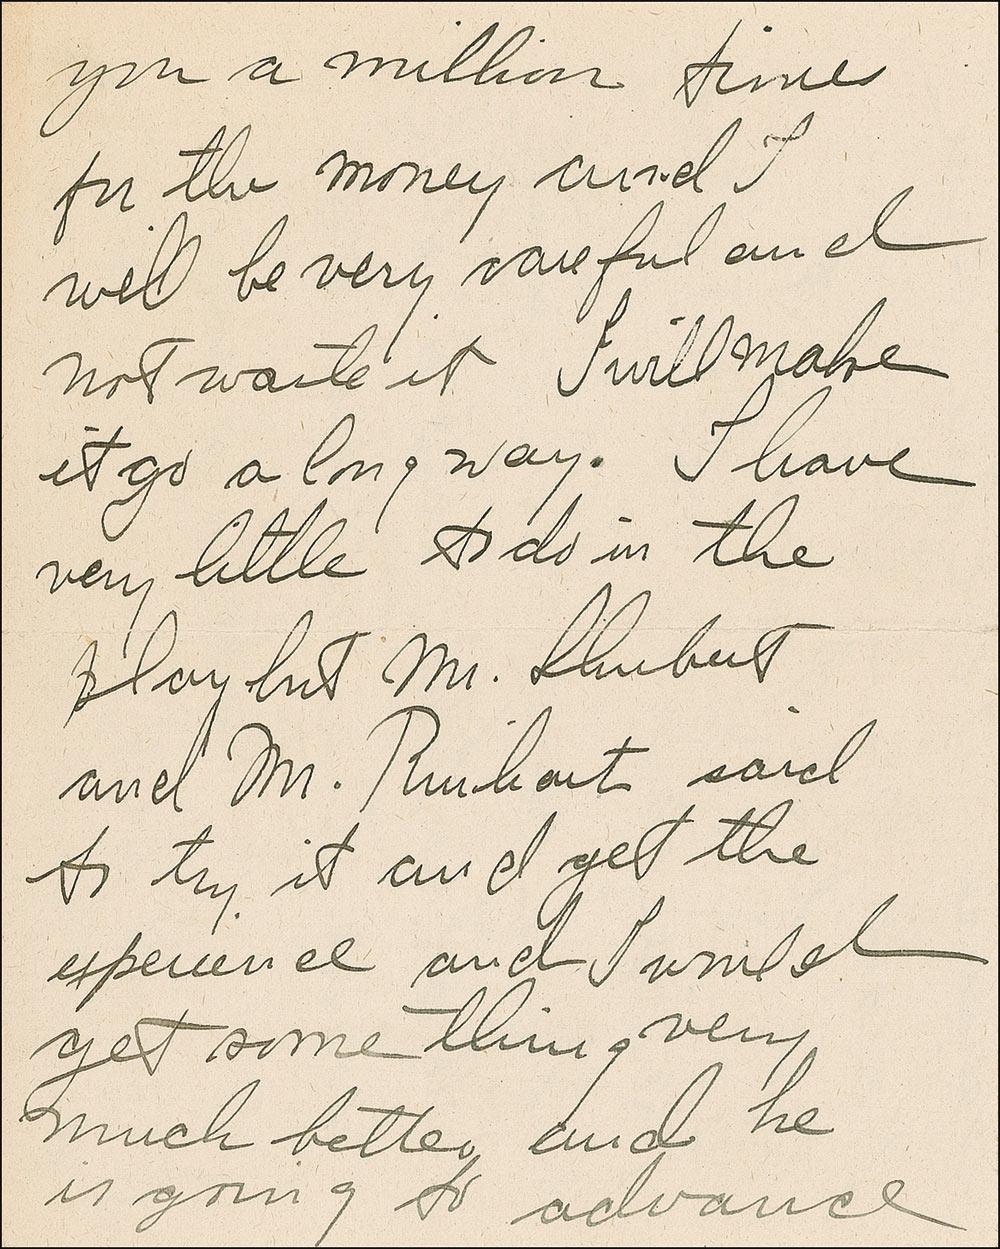 you a million times
for the money and I
will be very careful and
not waste it I will make
it go a long way. I have
very little to do in the
play but Mr. Shubert
and Mr. Rinhart said
to try it and get the
experience and I would
get something very
much better, and he
is going to advance